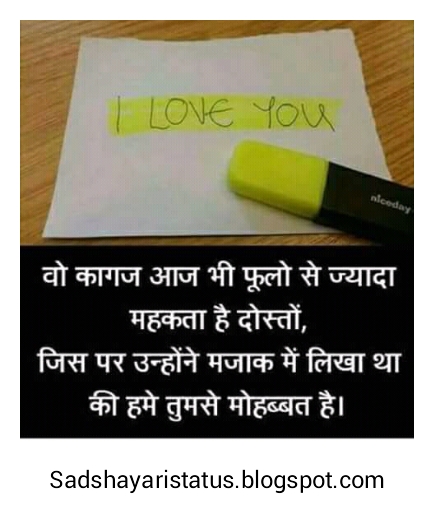 I LOVE YOU
niceday
वो कागज आज भी फूलो से ज्यादा
महकता है दोस्तों,
जिस पर उन्होंने मजाक में लिखा था
की हमे तुमसे मोहब्बत है।
Sadshayaristatus.blogspot.com